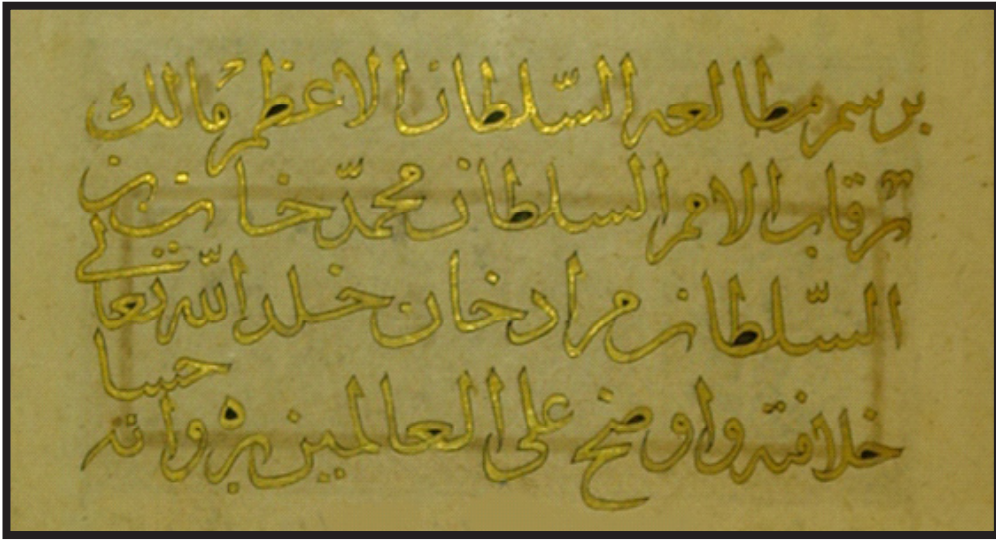 برسم مطالعه السّلطان الاعظم مالك
رقاب الامم السلطان محمّد خان بن
السّلطان مراد خان خلد اللّه تعالى
خلافته واوضح على العالمين بره واحسانه